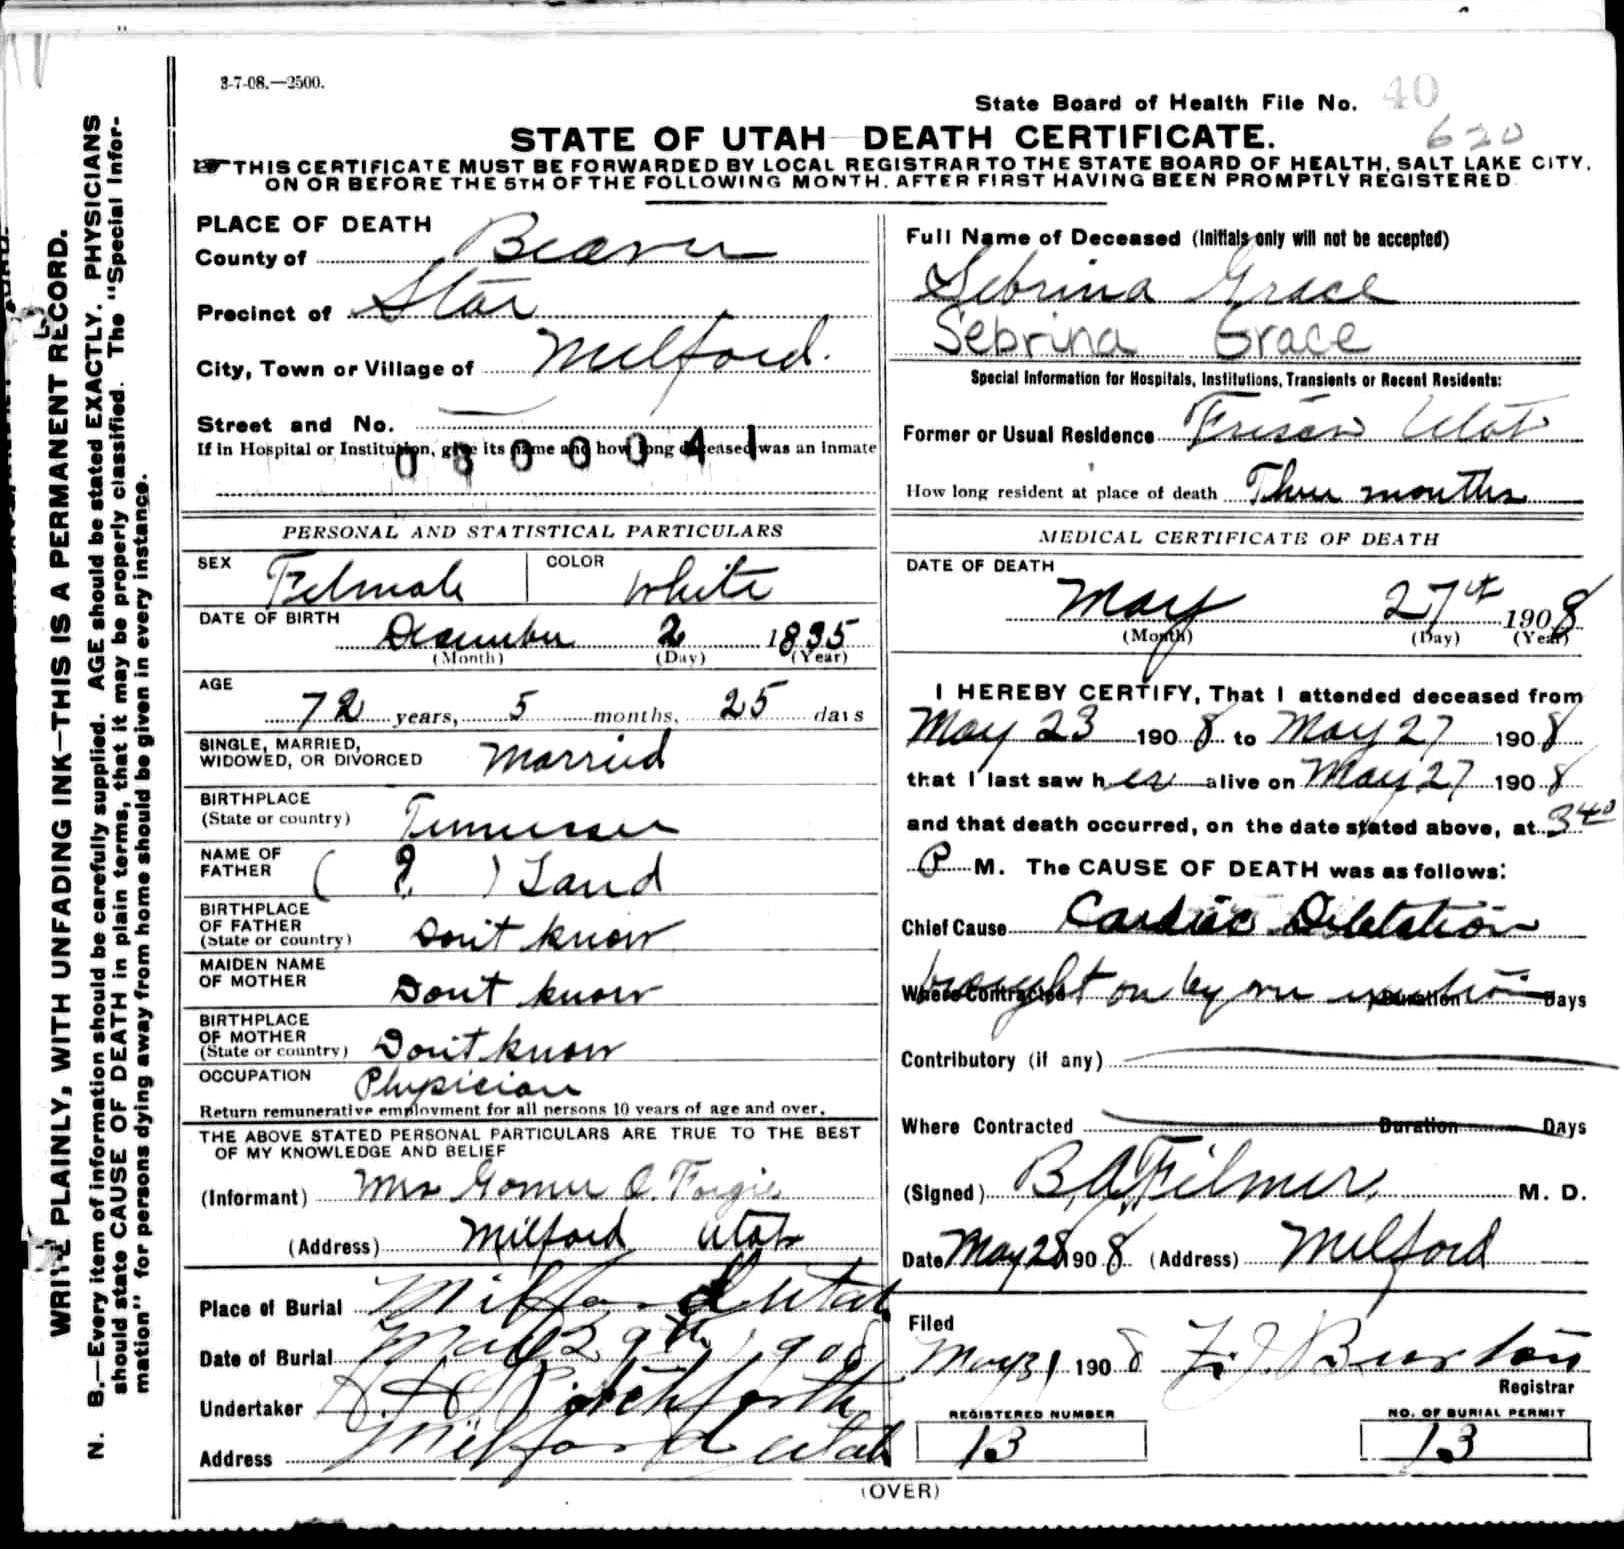 3-7-08.—2500.
State Board of Health File No. 40
620
STATE OF UTAH DEATH CERTIFICATE.
THIS CERTIFICATE MUST BE FORWARDED BY LOCAL REGISTRAR TO THE STATE BOARD OF HEALTH, SALT LAKE CITY,
ON OR BEFORE THE 5TH OF THE FOLLOWING MONTH. AFTER FIRST HAVING BEEN PROMPTLY REGISTERED
WRITE PLAINLY, WITH UNFADING INK—THIS IS A PERMANENT RECORD.
N. B.—Every item of information should be carefully supplied. AGE should be stated EXACTLY. PHYSICIANS
should state CAUSE OF DEATH in plain terms, that it may be properly classified. The "Special Infor-
mation" for persons dying away from home should be given in every instance.
PLACE OF DEATH
County of Beaver
Precinct of Star
City, Town or Village of Milford.
Street and No.
If in Hospital or Institution, give its name and how long deceased was an inmate
0800041
PERSONAL AND STATISTICAL PARTICULARS
SEX Felmale COLOR White
DATE OF BIRTH December 2 1835
(Month) (Day) (Year)
AGE
72 years, 5 months, 25 days
SINGLE, MARRIED,
WIDOWED, OR DIVORCED Married
BIRTHPLACE
(State or country) Tennessee
NAME OF
FATHER ( ? ) Land
BIRTHPLACE
OF FATHER
(State or country) Don't know
MAIDEN NAME
OF MOTHER Dont know
BIRTHPLACE
OF MOTHER
(State or country) Don't know
OCCUPATION Physician
Return remunerative employment for all persons 10 years of age and over.
THE ABOVE STATED PERSONAL PARTICULARS ARE TRUE TO THE BEST
OF MY KNOWLEDGE AND BELIEF
(Informant) Mrs Gomer O. Forgie
(Address) Milford Utah
Place of Burial Milford Utah
Date of Burial May 29th, 1908
Undertaker
Address Milford Utah
Full Name of Deceased (Initials only will not be accepted)
Sebrina Grace
Sebrina Grace
Special Information for Hospitals, Institutions, Transients or Recent Residents:
Former or Usual Residence Frisco Utah
How long resident at place of death Three months
MEDICAL CERTIFICATE OF DEATH
DATE OF DEATH
May 27th 1908
(Month) (Day) (Year)
I HEREBY CERTIFY, That I attended deceased from
May 23 1908 to May 27 1908
that I last saw her alive on May 27 1908
and that death occurred, on the date stated above, at 340
P M. The CAUSE OF DEATH was as follows:
Chief Cause Cardiac Diletation
brought on by over exertion
Where Contracted Duration Days
Contributory (if any)
Where Contracted Duration Days
(Signed) B. A. Filmer, M. D.
Date May 28 1908 (Address) Milford
Filed
May 31 1908 F. J. Burton
Registrar
REGISTERED NUMBER
13
NO. OF BURIAL PERMIT
13
(OVER)